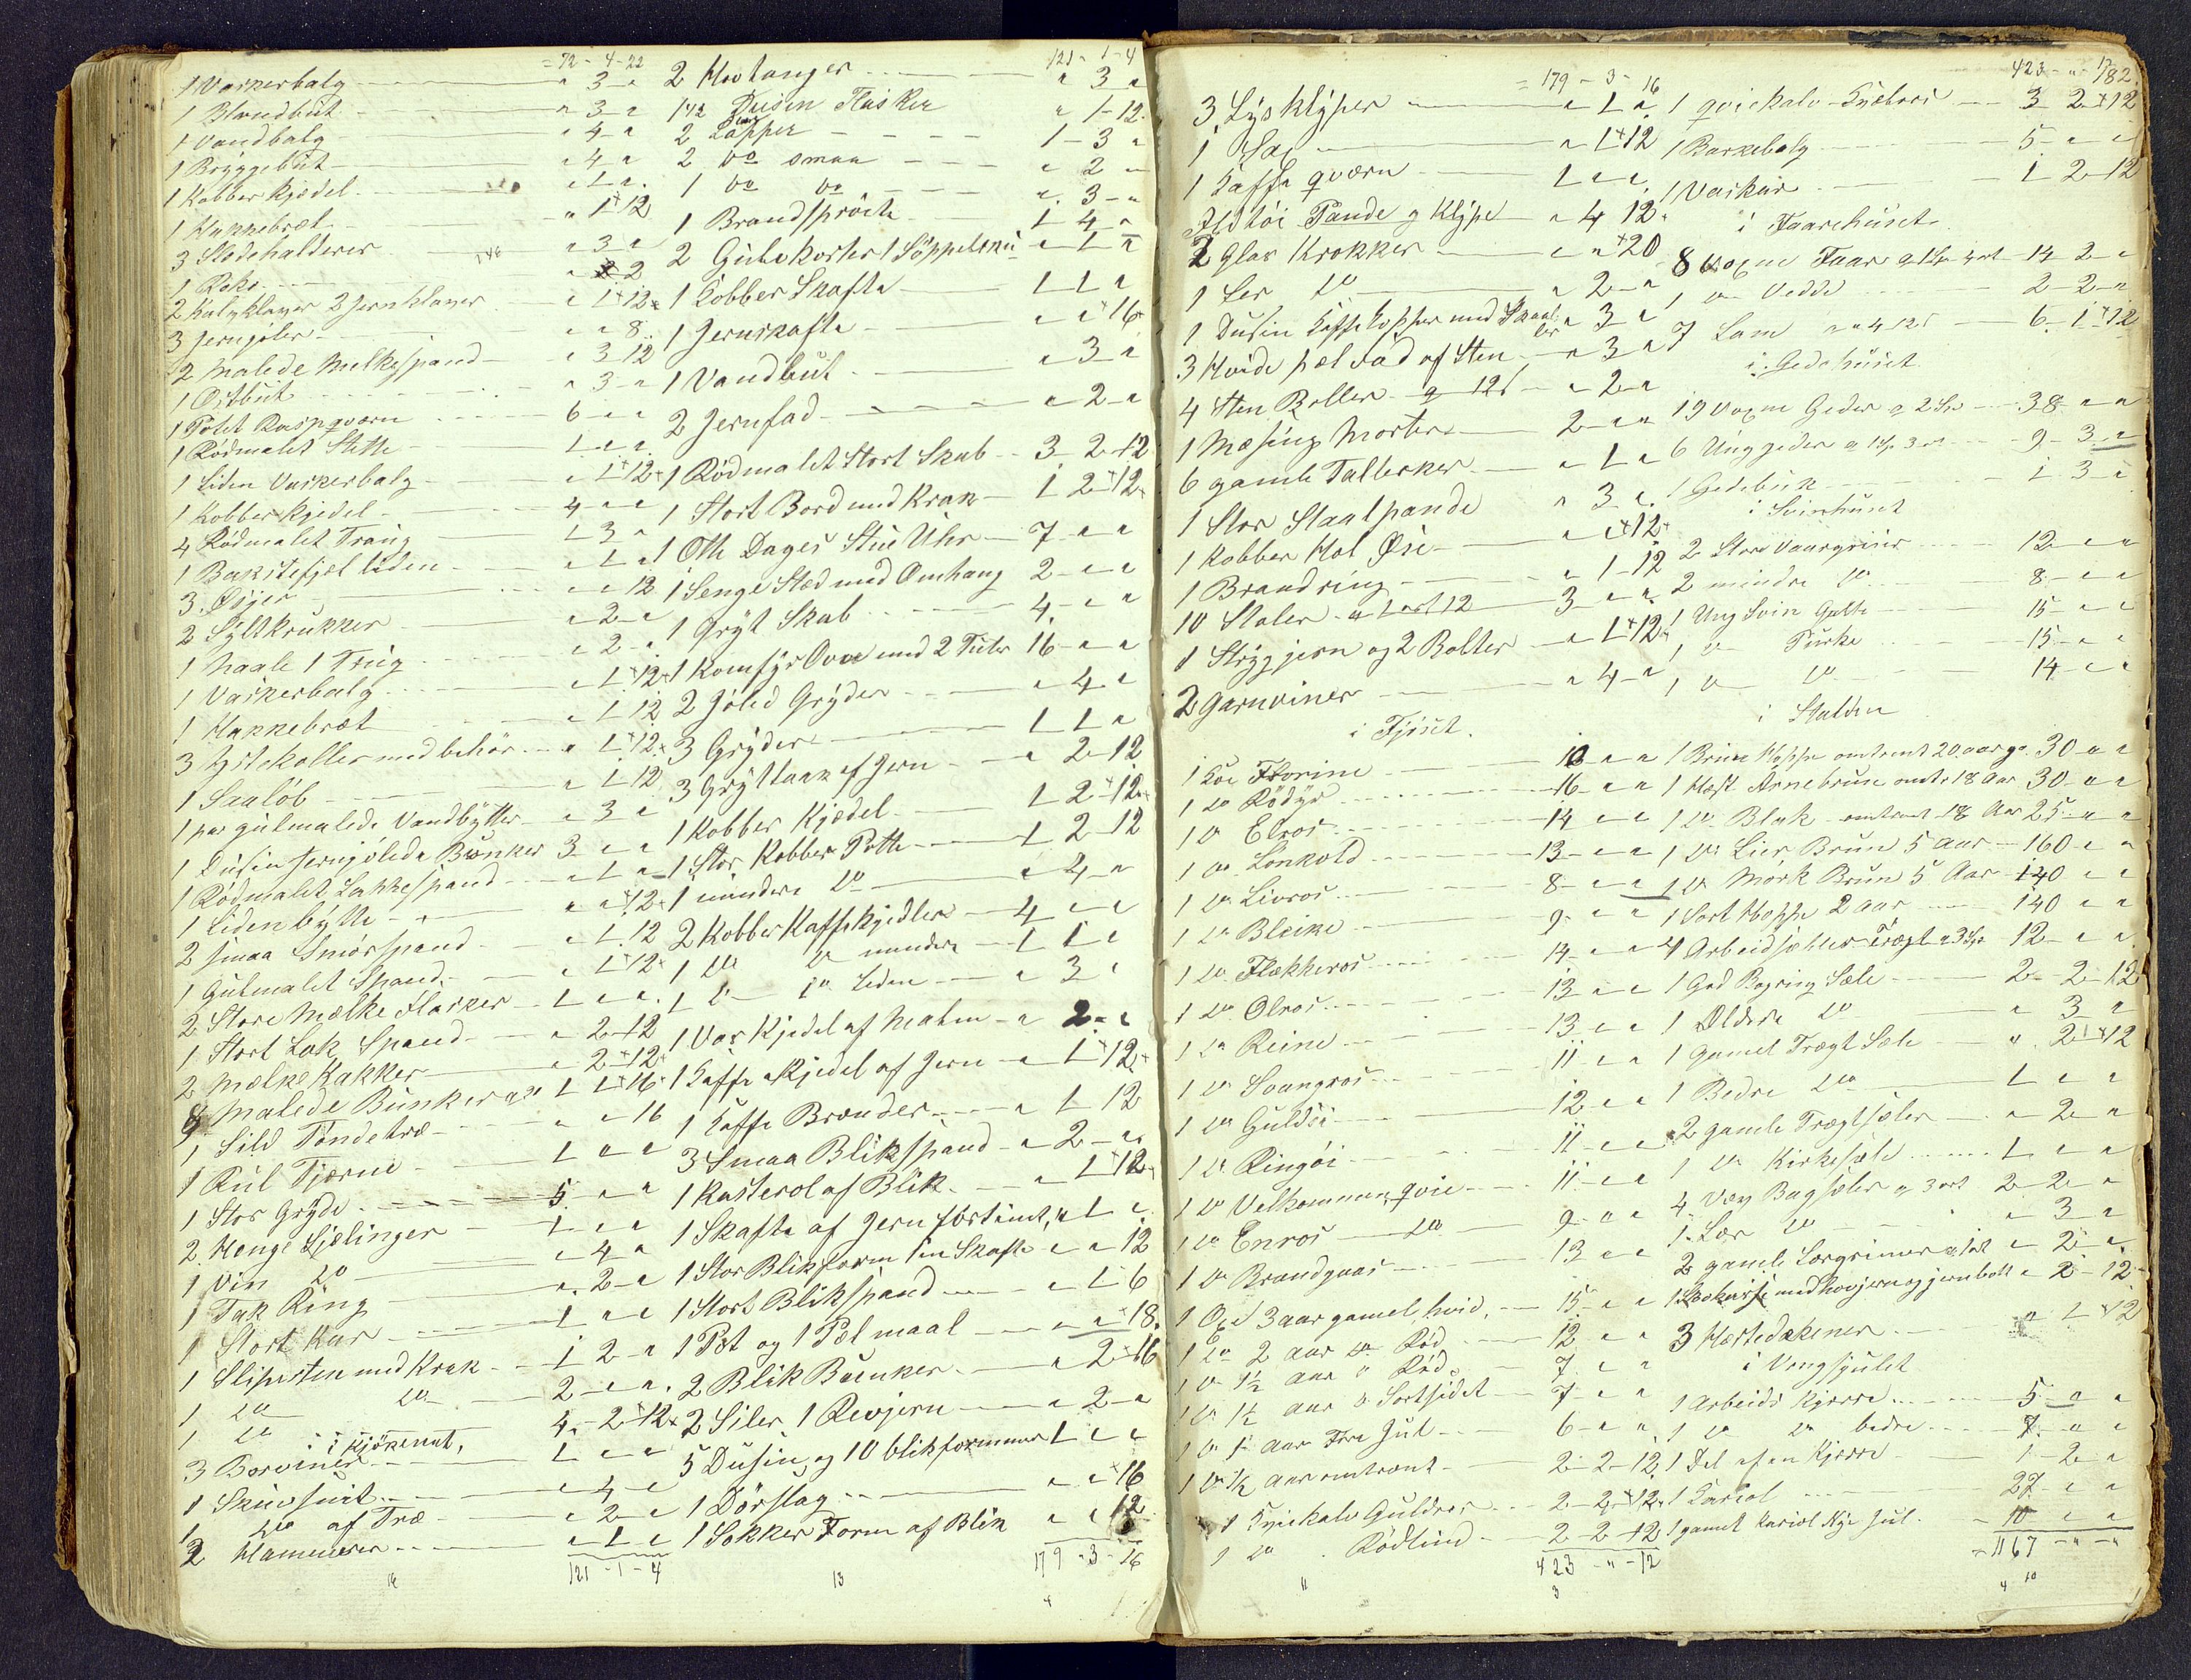 = 72 - 4 - 22
1 Vaskerbalg " 3 "
1 Blandbut " 3 "
1 Vandbalg " 4 "
1 Bryggebut " 4 "
1 Kobber Kjedel " 1 "
1 Hakkebræt " 1 12
3 Stedehalderer " 3 "
1 Rake " 2
" 1 12
3 Jerngjöler " " 8
2 malede melkespand " 3 12
1 Ostbut " 3 "
1 Potet Raspqværn 6 " "
1 Rödmalet Stette 1 " "
1 Liden Vaskerbalg " 1 12
1 Kobber kjedel 4 " "
4 Rödmalet Traug 1 3 "
1 Bakstefjel liden " 1 "
3 Øsjer " " 12
2 Syltkrukker " 2 "
1 Maale 1 Trug " 2 "
1 Vaskerbalg " 1 12
1 Hakkebræt " 1 12
3 Ystekoller med behör " 1 12
1 Saalöb " 1 12
1 par gulmalede Vandbytter " 3 "
1 Dusin Jerngjölede Bunker 3 " "
1 Rödmalet Lakkespand " 1 "
1 Liden bytte " " 12
2 smaa Smörspand " 1 12
1 Gulmalet Spand " 1 12
2 Store Mælke flasker 1 " "
1 Stort Lok Spand " 2 12
2 Mælke Kakker " 2 12
9 Malede Bunker 1 1 16
1 Sild Töndetræ " " 16
1 Kul Tjærne 1 " "
1 Stor Gryde 5 " "
2 Henge Hjelinger 1 " "
1 Vin do " 4 "
1 Tak Ring " 2 "
1 Stort Kar 1 " "
1 Slipesten med Krak 1 2 "
1 do do 2 " "
1 do 4 2 12
i kjökenet,
3 Borviner 1 " "
1 " 4 "
1 do af Træ " 2 "
2 Hammerer " 1 "
121 - 1 - 4
121 - 1 - 4
2 Hovtanger " 3 "
1 1/2 Dusin Flasker " 1 12
2 1 3 "
2 do smaa " 2 "
1 do do " 3 "
1 Brandspröite 1 4 "
2 " 1 "
1 Kobber Skafte 1 1 "
1 Jernskafte " " 16
1 Vandbut " 3 "
2 Jernfad " 2 "
1 Rödmalet Stort Skab 3 2 12
1 Stort Bord med Krak 1 2 12
1 Otte Dages Stue Uhr 7 " "
1 Senge Sted med Omhang 2 " "
1 Gryt Skab 4 " "
1 Komfyr Ovn med 2 Tuter 16 " "
2 Jöled Gryder " 4 "
3 Gryder 1 1 "
3 Gryttaak af Jern " 2 12
1 Kobber Kjedel 1 2 12
1 Stor Kobber Potte 1 2 12
1 mindere do " 4 "
2 Kobber Kaffekjedler 4 " "
1 do do mindere 1 1 "
1 do do Liden " 3 "
1 Vas Kjedel af Malm " 2 "
1 Kaffe Kjedel af Jern " 1 12
1 Kaffe Brænder " 1 12
3 Smaa Blikspand " 2 "
1 Kasterol af Blik " 1 12
1 Skafte af Jern fortinnet, " 1 "
1 Stor Blikform 1 en Skafte " " 12
1 Stort Blikspand " 1 6
1 Pot og 1 Pæl maal " " 18
2 Blik Bunker " 2 16
2 Siler 1 Revjern " 2 "
5 Dusin og 10 blikformmer 1 " "
1 Dörslag " " 16
1 Sokker Form af Blik " " 12
179 - 3 - 16
= 179 - 3 - 16
3 Lysklyper " 1 "
1 Sax " 1 12
1 Kaffe qværn 1 " "
Ildtöi Tande og Klype " 4 12
2 Glas Krokker " " 20
1 Ler do " 2 "
1 Dusin Kaffe Kopper med Skaaler " 3 "
3 Hvide pæl Fad af Sten " 3 "
4 Sten Boller a 12 s " 2 "
1 Mæsing Morter 2 " "
6 gamle Tallerker " 1 "
1 Stor Staalpande " 3 "
1 Kobber Kol Øse " " 12
1 Brandring " 1 12
10 Stoler a 1 ort 12 3 " "
1 Strygjern og 2 Bolter " 1 12
2 Garnviner " 4 "
i Fjöset.
1 Koe Florine 10 " "
1 do Rödÿr 16 " "
1 do Elros 14 " "
1 do Lonkold 13 " "
1 do Livros 8 " "
1 do Bleike 9 " "
1 do Flækkeros 14 " "
1 do Olros 13 " "
1 do Reine 13 " "
1 do Svangros 11 " "
1 do Guldöi 12 " "
1 do Ringöi 11 " "
1 do Velkommen, qvie 11 " "
1 do Enros do 9 " "
1 do Brandgaas 13 " "
1 Oxe 3 aar gamel, hvid, 15 " "
1 do 2 aar do Röd 12 " "
1 do 1 1/2 aar " Röd 7 " "
1 do 1 1/2 aar " Sortsidet 7 " "
1 do 1 aar Fra Jul 6 " "
1 do 1/2 aar omtrent 2 2 12
1 Kviekalv Guldros 2 2 12
1 do Rödlind 2 2 12
423 - " - 12
423 - " - 12
182.
1 qviekalv 3 2 12
1 Barkebalg 5 " "
1 Vaskar 1 2 12
i Faarehuset
8 voxne Faar 14 2 "
1 do Vedder 2 2 "
7 Lam 6 1 12
i Gedehuset
19 Voxne Geder a 2 Sp 38 " "
6 Unggeder a 1 Sp 3 ort 9 3 "
1 Gedebuk 1 3 "
i Svinehuset
2 Store Vaargriser 12 " "
2 mindre do 8 " "
1 Ung Svin Galte 15 " "
1 do Purke 15 " "
1 do do 14 " "
i Stalden
1 Brun Hoppe omtrent 20 aar ga. 30 " "
1 Hest Arnebrun omtr 18 Aar 30 " "
1 do Blak omtrent 18 Aar 25 " "
1 do Lier Brun 5 aar 160 " "
1 do Mörk Brun 5 Aar 140 " "
1 Sort Hoppe 2 aar 140 " "
4 Arbeidsæler Trægt a 3 Sp 12 " "
1 God Bogring Sele 2 2 12
1 Aldere do " 3 "
1 gamel Trægt Sele " 2 12
1 Bedre do 1 " "
2 gamle Trægtseler " 2 "
1 do Kirkesele 1 " "
4 Bagseler a 3 ort 2 2 "
1 Lær do " 3 "
2 gamle Lærgrimer a 1 ort " 2 "
2 12
3 Hestedækener " 1 12
i Vongsjulet
1 Arbeids Kjerre 5 " "
1 do do bedre 7 " "
1 Del af en Kjerre 1 2 "
1 Kariol 27 " "
1 gamel Kariol Nye Jul 10 " "
1167 - " - "